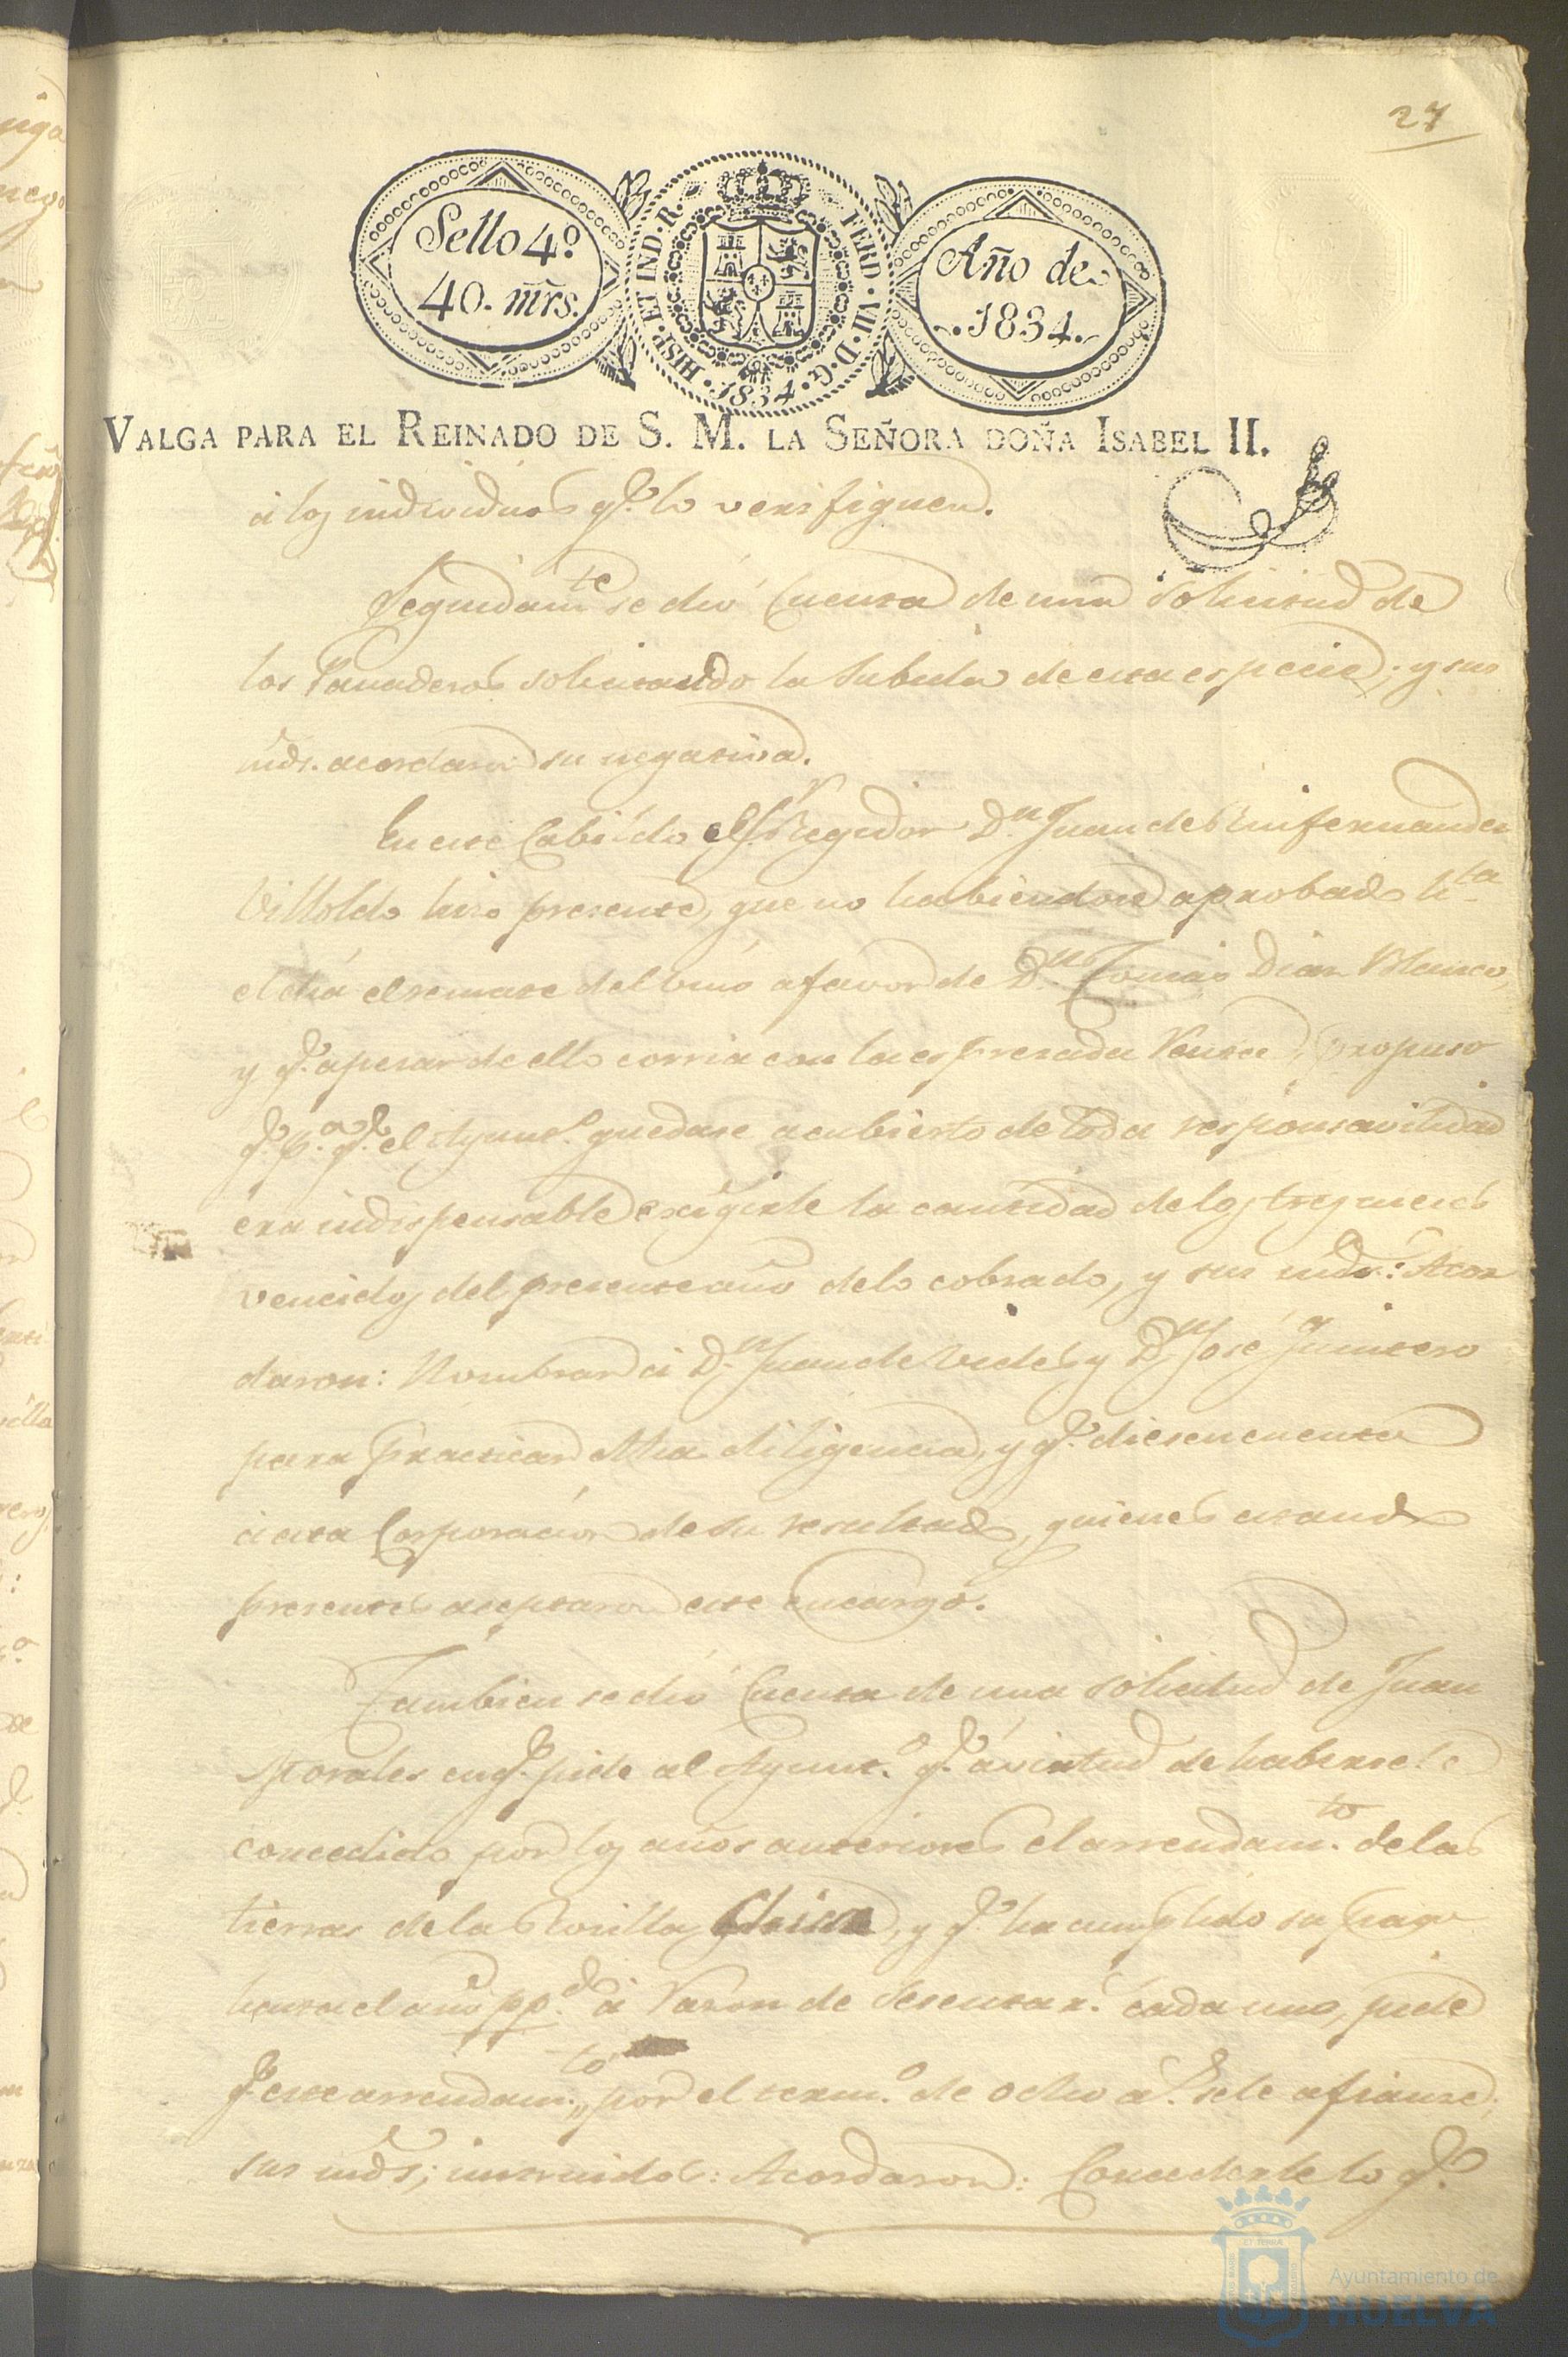 27
Sello 4º
40. mrs.
HISP. ET IND. R. FERD. VII. D. G. 1834.
Año de
1834.
VALGA PARA EL REINADO DE S. M. LA SEÑORA DOÑA ISABEL II.
á los individuos q.e lo verifiquen.
Seguidam.te se dió Cuenta de una solicitud de
los Panaderos solicitando la Subida de esta especie; y sus
mds. acordaron su negativa.
En este Cabildo el S.r Regidor D.n Juan de
Villoldo hizo presente, que no habiendose aprobado h.ta
el dia el remate del vino a favor de D.n Tomas Diaz Blanco,
y q.e apesar de ello corria con la espresada Venta, propuso
q.e p.a q.e el Ayunt.o quedase a cubierto de toda responsavilidad
era indispensable exigirle la cantidad de los tres meses
vencidos del presente año de lo cobrado, y sus mds.: Acor
daron: Nombrar á D.n Juan de Vides y D.n José Quintero
para practicar dha diligencia, y q.e diesen cuenta
á esta Corporacion de su resultado, quienes estando
presentes aceptaron este encargo.
Tambien se dió Cuenta de una solicitud de Juan
Morales en q.e pide al Ayunt.o q.e á virtud de haversele
concedido por los años anteriores el arrendam.to de las
tierras de la Torilla, y q.e ha cumplido su pago
hasta el año pp.do á razon de sesenta r.s cada uno, pide
q.e este arrendam.to por el term.o de ocho a.s se le afianze;
sus mds; instruidos: Acordaron: Concederle lo q.e
Ayuntamiento de
HUELVA